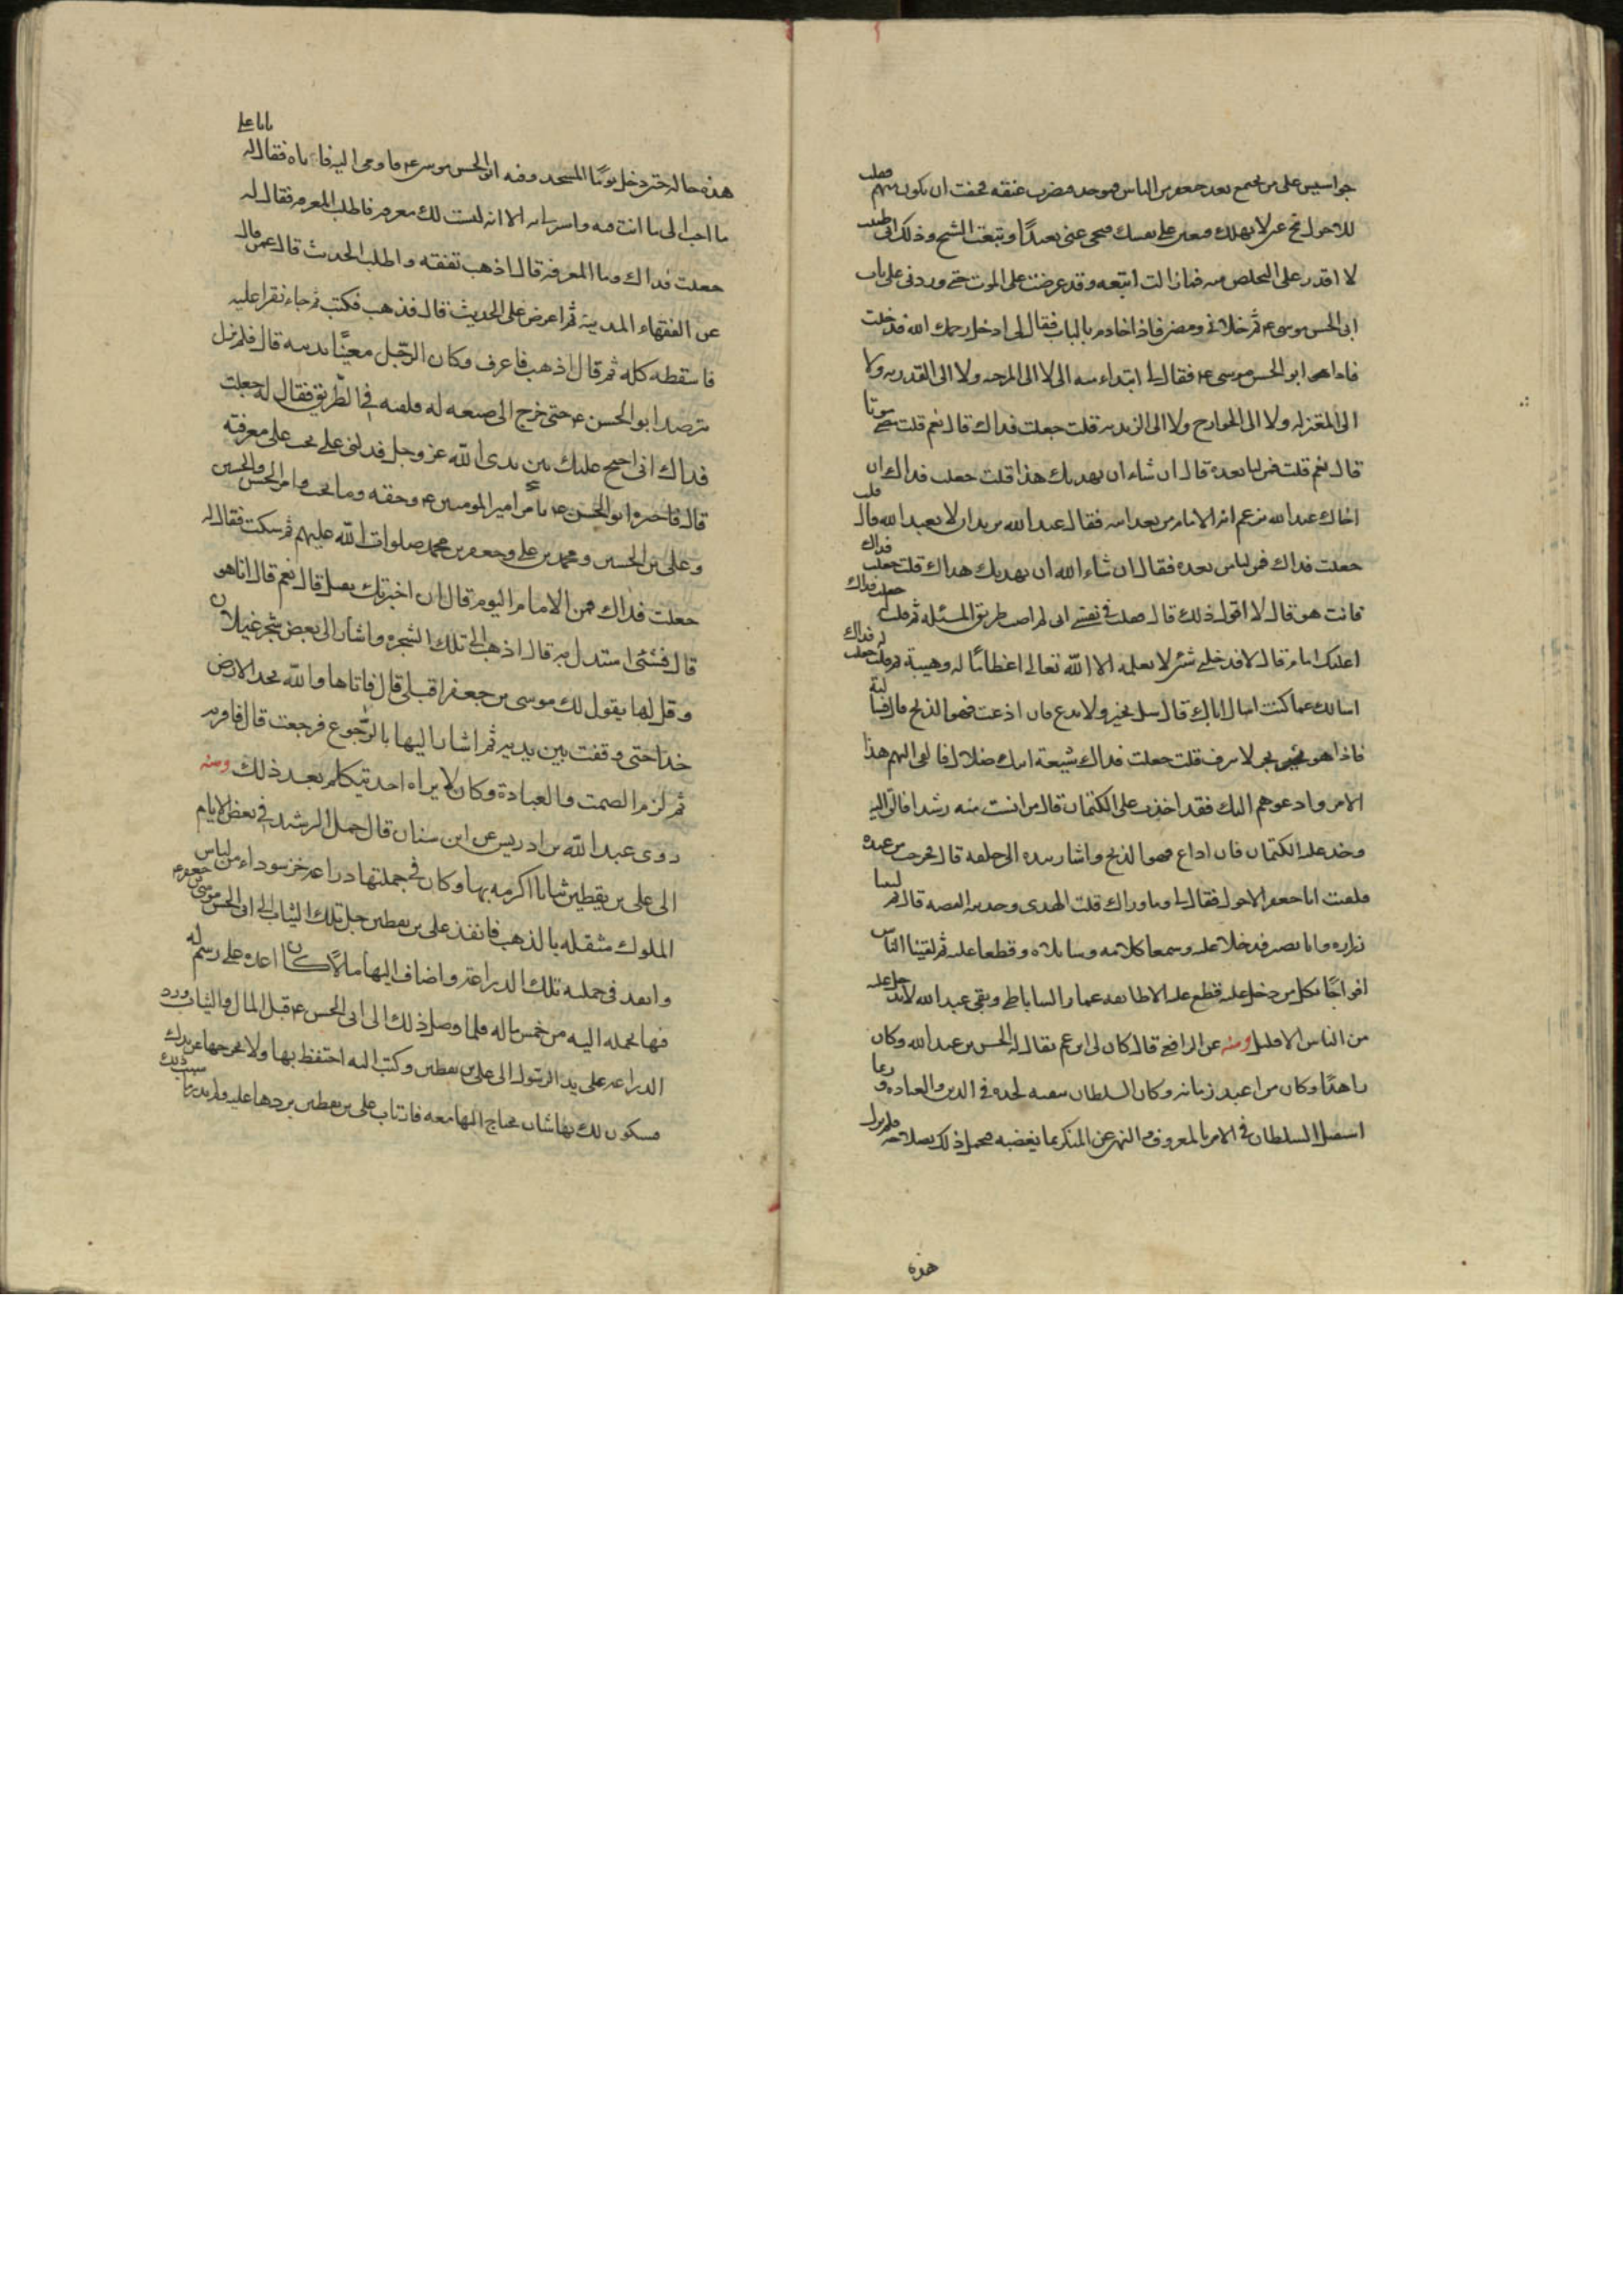 جواسيس على من يجتمع بعد جعفر من الناس فيوجد فيضرب عنقه فخفت ان يكون منهم فقلت
للاحول تنح عني لا تهلك وتعين على نفسك فتنحى عني بعيدًا وتبعت الشيخ وذلك اني ظننت
لا اقدر على التخلص منه فما زالت اتبعه وقد عرضت على الموت حتى وردني على باب
ابى الحسن موسى ع ثم خلانى ومضى فاذا خادم بالباب فقال لى ادخل رحمك الله فدخلت
فاذا هو ابو الحسن موسى ع فقال لى ابتداء منه الى لا الى المرجئه ولا الى القدريه ولا
الى المعتزله ولا الى الخوارج ولا الى الزيديه قلت جعلت فداك قال نعم قلت مضى موتا
قال نعم قلت فمن لنا بعده قال ان شاء ان يهديك هذا قلت جعلت فداك ان
اخاك عبد الله يزعم انه الامام من بعد ابيه فقال عبد الله يريد ان لا يعبد الله قال قلت
جعلت فداك فمن لنا من بعده فقال ان شاء الله ان يهديك هداك قلت جعلت فداك
فانت هو قال لا اقول ذلك قال فقلت في نفسى انى لم اصب طريق المسئله ثم قلت جعلت فداك
اعليك امام قال لا فدخلني شئ لا يعلمه الا الله تعالى اعظامًا له وهيبة ثم قلت له جعلت فداك
اسالك عما كنت اسال اباك قال سل تخبر ولا تذع فان اذعت فهو الذبح قال فسالته
فاذا هو بحر لا ينزف قلت جعلت فداك شيعة ابيك ضلال فالقى اليهم هذا
الامر وادعوهم اليك فقد اخذت على الكتمان قال من انست منه رشدا فالق اليه
وخذ عليه الكتمان فان اذاع فهو الذبح واشار بيده الى حلقه قال فخرجت من عنده
فلقيت ابا جعفر الاحول فقال لى ما وراك قلت الهدى وحدثته القصه قال ثم لقينا
زراره وابا بصير فدخلا عليه وسمعا كلامه وساءلاه وقطعا عليه ثم لقينا الناس
افواجًا فكل من دخل عليه قطع عليه الا طائفه عمار الساباطى وبقى عبد الله لا يدخل عليه
من الناس الا قليل ومنه عن الرافعى قال كان لى ابن عم يقال له الحسن بن عبد الله وكان
زاهدًا وكان من اعبد زمانه وكان السلطان يتقيه لجده في الدين والعباده وربما
استقبل السلطان في الامر بالمعروف والنهى عن المنكر بما يغضبه فيحمل ذلك لصلاحه فلم يزل
هذه
هذه حاله حتى دخل يومًا المسجد وفيه ابو الحسن موسى ع فاومى اليه فاتاه فقال له يا ابا على
ما احب الى ما انت فيه واسرنى به الا انه ليست لك معرفه فاطلب المعرفه فقال له
جعلت فداك وما المعرفه قال اذهب تفقه واطلب الحديث قال عمن قال
عن الفقهاء المدينه ثم اعرض على الحديث قال فذهب فكتب ثم جاء فقرا عليه
فاسقطه كله ثم قال اذهب فاعرف وكان الرجل معنيًا بدينه قال فلم يزل
يترصد ابو الحسن ع حتى خرج الى ضيعه له فلقيه في الطريق فقال له جعلت
فداك انى احتج عليك بين يدى الله عز وجل فدلنى على ما يجب على معرفته
قال فاخبره ابو الحسن ع بامر امير المومنين ع وحقه وما يجب وامر الحسن والحسين
وعلى بن الحسين ومحمد بن على وجعفر بن محمد صلوات الله عليهم ثم سكت فقال له
جعلت فداك فمن الامام اليوم قال ان اخبرتك تقبل قال نعم قال انا هو
قال فشئ استدل به قال اذهب الى تلك الشجره واشار الى بعض شجر غيلان
وقل لها يقول لك موسى بن جعفر اقبلى قال فاتاها والله تخد الارض
خدا حتى وقفت بين يديه ثم اشار اليها بالرجوع فرجعت قال فاقر به
ثم لزم الصمت والعبادة وكان لا يراه احد يتكلم بعد ذلك ومنه
روى عبد الله بن ادريس عن ابن سنان قال حمل الرشيد في بعض الايام
الى على بن يقطين ثيابا اكرمه بها وكان في جملتها دراعه خز سوداء من لباس
الملوك مثقله بالذهب فانفذ على بن يقطين جل تلك الثياب الى ابى الحسن موسى بن جعفر ع
وانفذ في جمله تلك الدراعه واضاف اليها مالًا كان اعده على رسم له
فيما يحمله اليه من خمس ماله فلما وصل ذلك الى ابى الحسن ع قبل المال والثياب ورد
الدراعه على يد الرسول الى على بن يقطين وكتب اليه احتفظ بها ولا تخرجها عن يدك
فسيكون لك بها شان تحتاج اليها معه فارتاب على بن يقطين بردها عليه ولم يدر ما سبب ذلك